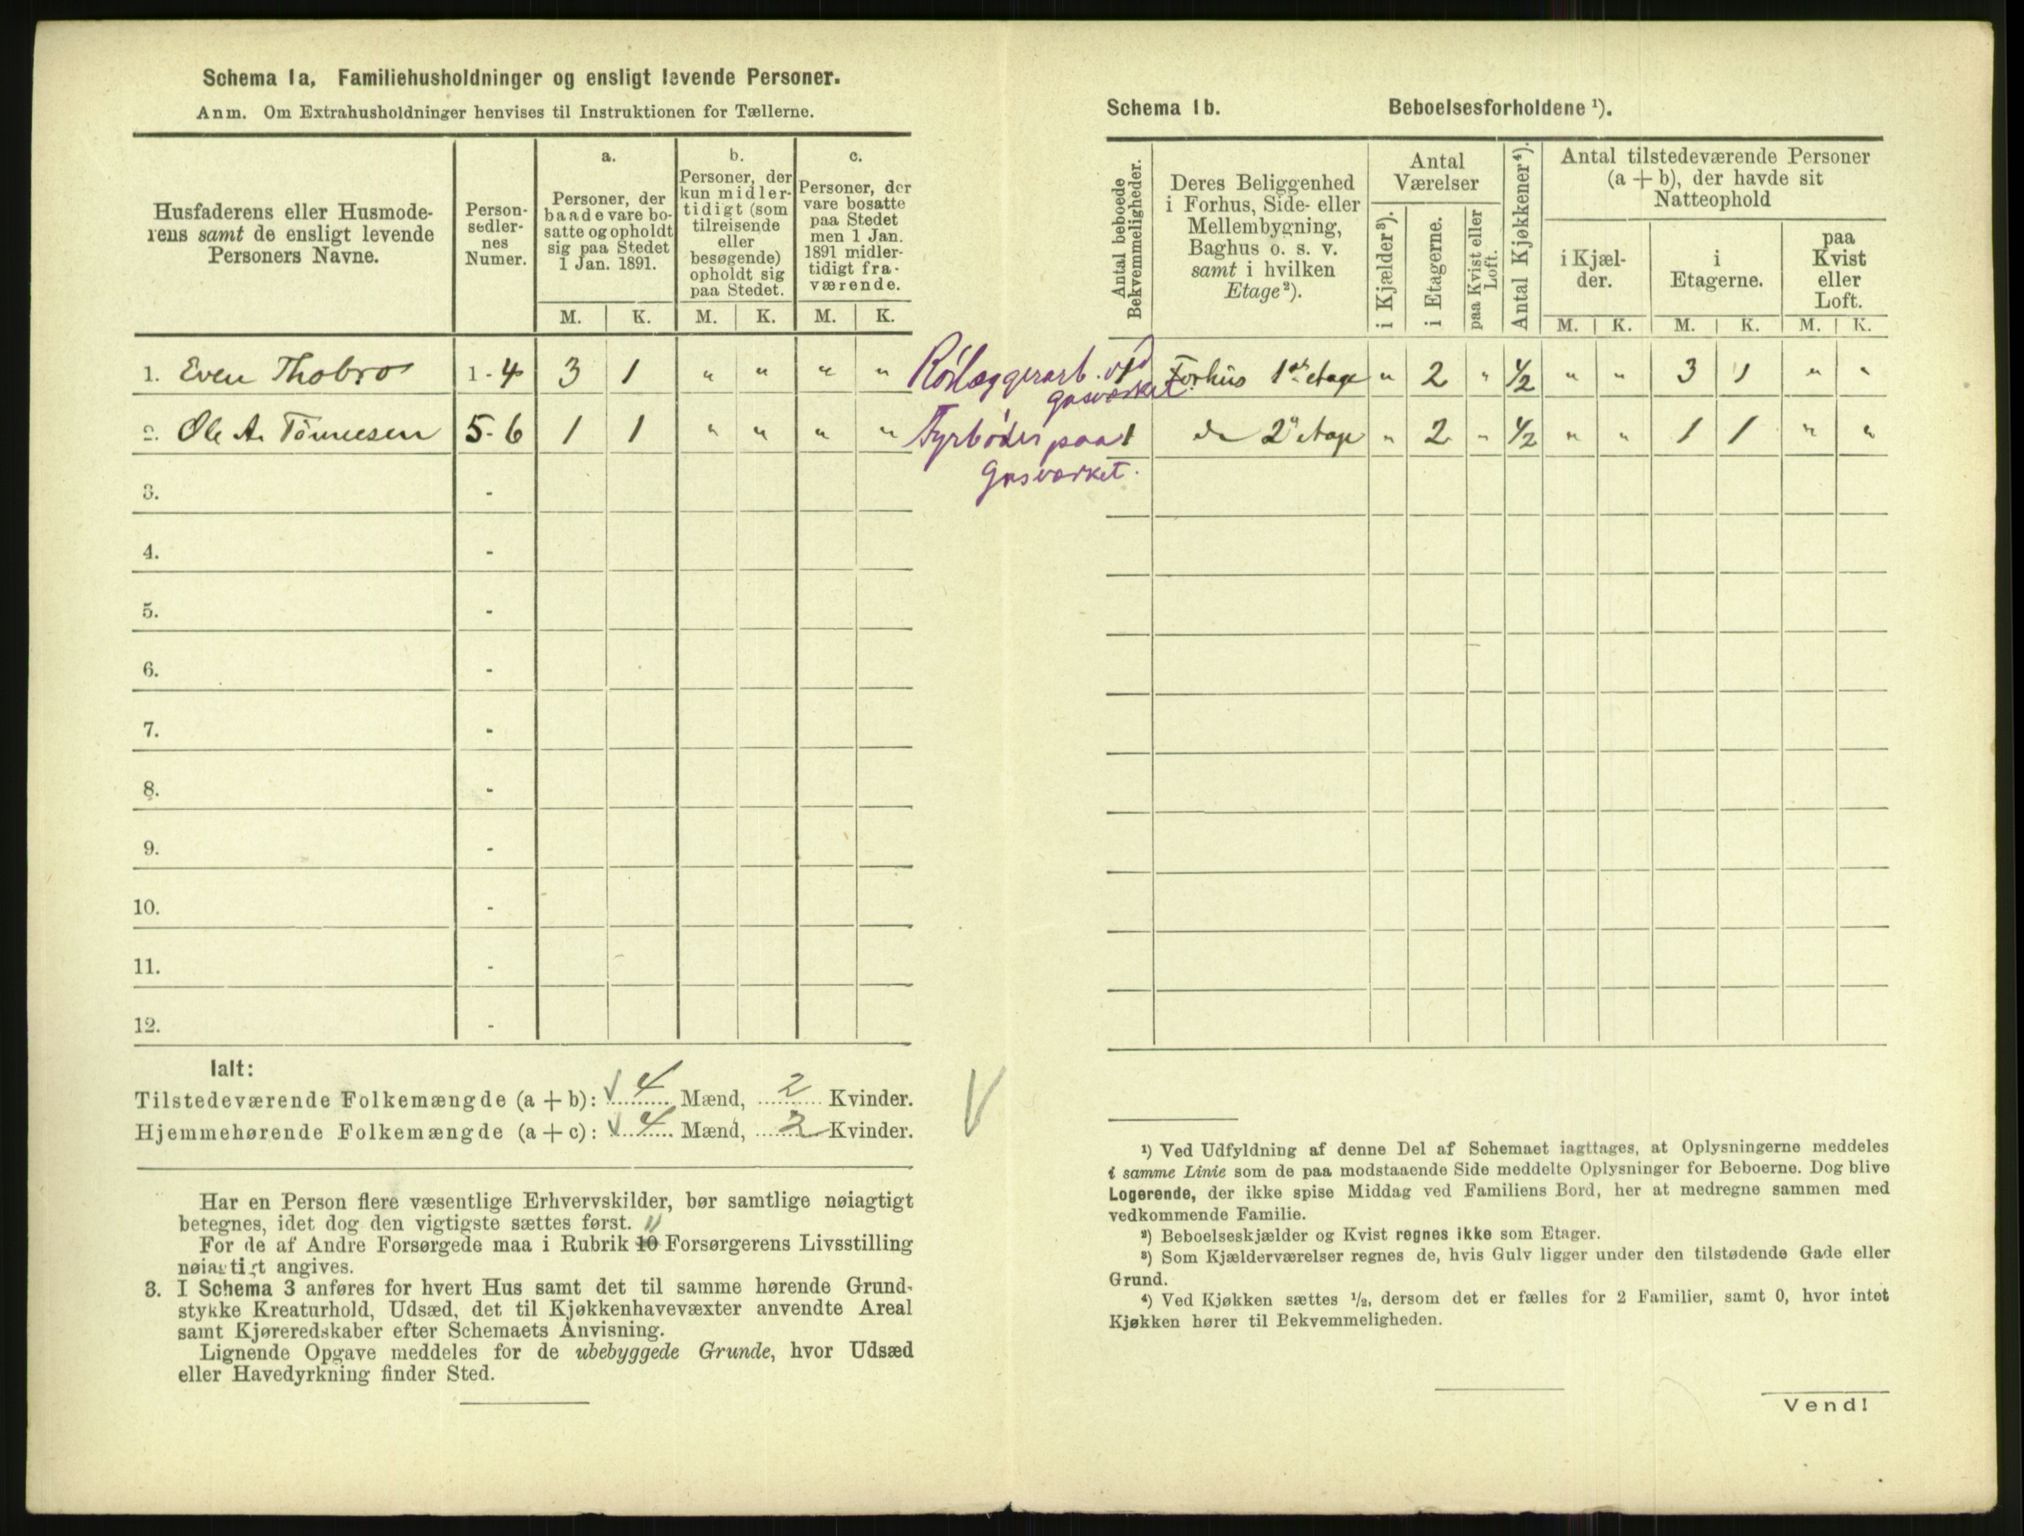 Schema 1a, Familiehusholdninger og ensligt levende Personer.
Anm. Om Extrahusholdninger henvises til Instruktionen for Tællerne.
Husfaderens eller Husmode-
rens samt de ensligt levende
Personers Navne.
Person-
sedler-
nes
Numer.
a.
Personer, der
baade vare bo-
satte og opholdt
sig paa Stedet
1 Jan. 1891.
b.
Personer, der
kun midler-
tidigt (som
tilreisende
eller
besøgende)
opholdt sig
paa Stedet.
c.
Personer, der
vare bosatte
paa Stedet
men 1 Jan.
1891 midler-
tidigt fra-
værende.
M. K. M. K. M. K.
1. Even Thobro 1-4 3 1 " " " " Rörlæggerarb. ved
gasværket
2. Ole A. Tönnesen 5-6 1 1 " " " " Fyrböder paa
Gasværket.
3. -
4. -
5. -
6. -
7. -
8. -
9. -
10. -
11. -
12. -
Ialt:
Tilstedeværende Folkemængde (a + b): 4 Mænd, 2 Kvinder.
Hjemmehørende Folkemængde (a + c): 4 Mænd, 2 Kvinder.
Har en Person flere væsentlige Erhvervskilder, bør samtlige nøiagtigt
betegnes, idet dog den vigtigste sættes først.
11
For de af Andre Forsørgede maa i Rubrik 10 Forsørgerens Livsstilling
nøiagtigt angives.
3. I Schema 3 anføres for hvert Hus samt det til samme hørende Grund-
stykke Kreaturhold, Udsæd, det til Kjøkkenhavevæxter anvendte Areal
samt Kjøreredskaber efter Schemaets Anvisning.
Lignende Opgave meddeles for de ubebyggede Grunde, hvor Udsæd
eller Havedyrkning finder Sted.
Schema 1b. Beboelsesforholdene ¹).
Antal beboede
Bekvemmeligheder.
Deres Beliggenhed
i Forhus, Side- eller
Mellembygning,
Baghus o. s. v.
samt i hvilken
Etage²).
Antal
Værelser
i Kjælder³).
i Etagerne.
paa Kvist eller
Loft.
Antal Kjøkkener⁴).
Antal tilstedeværende Personer
(a + b), der havde sit
Natteophold
i Kjæl-
der.
i
Etagerne.
paa
Kvist
eller
Loft.
M. K. M. K. M. K.
1 Forhus 1ste etage " 2 " 1/2 " " 3 1 " "
1 do 2" etage " 2 " 1/2 " " 1 1 " "
¹) Ved Udfyldning af denne Del af Schemaet iagttages, at Oplysningerne meddeles
i samme Linie som de paa modstaaende Side meddelte Oplysninger for Beboerne. Dog blive
Logerende, der ikke spise Middag ved Familiens Bord, her at medregne sammen med
vedkommende Familie.
²) Beboelseskjælder og Kvist regnes ikke som Etager.
³) Som Kjælderværelser regnes de, hvis Gulv ligger under den tilstødende Gade eller
Grund.
⁴) Ved Kjøkken sættes ½, dersom det er fælles for 2 Familier, samt 0, hvor intet
Kjøkken hører til Bekvemmeligheden.
Vend!